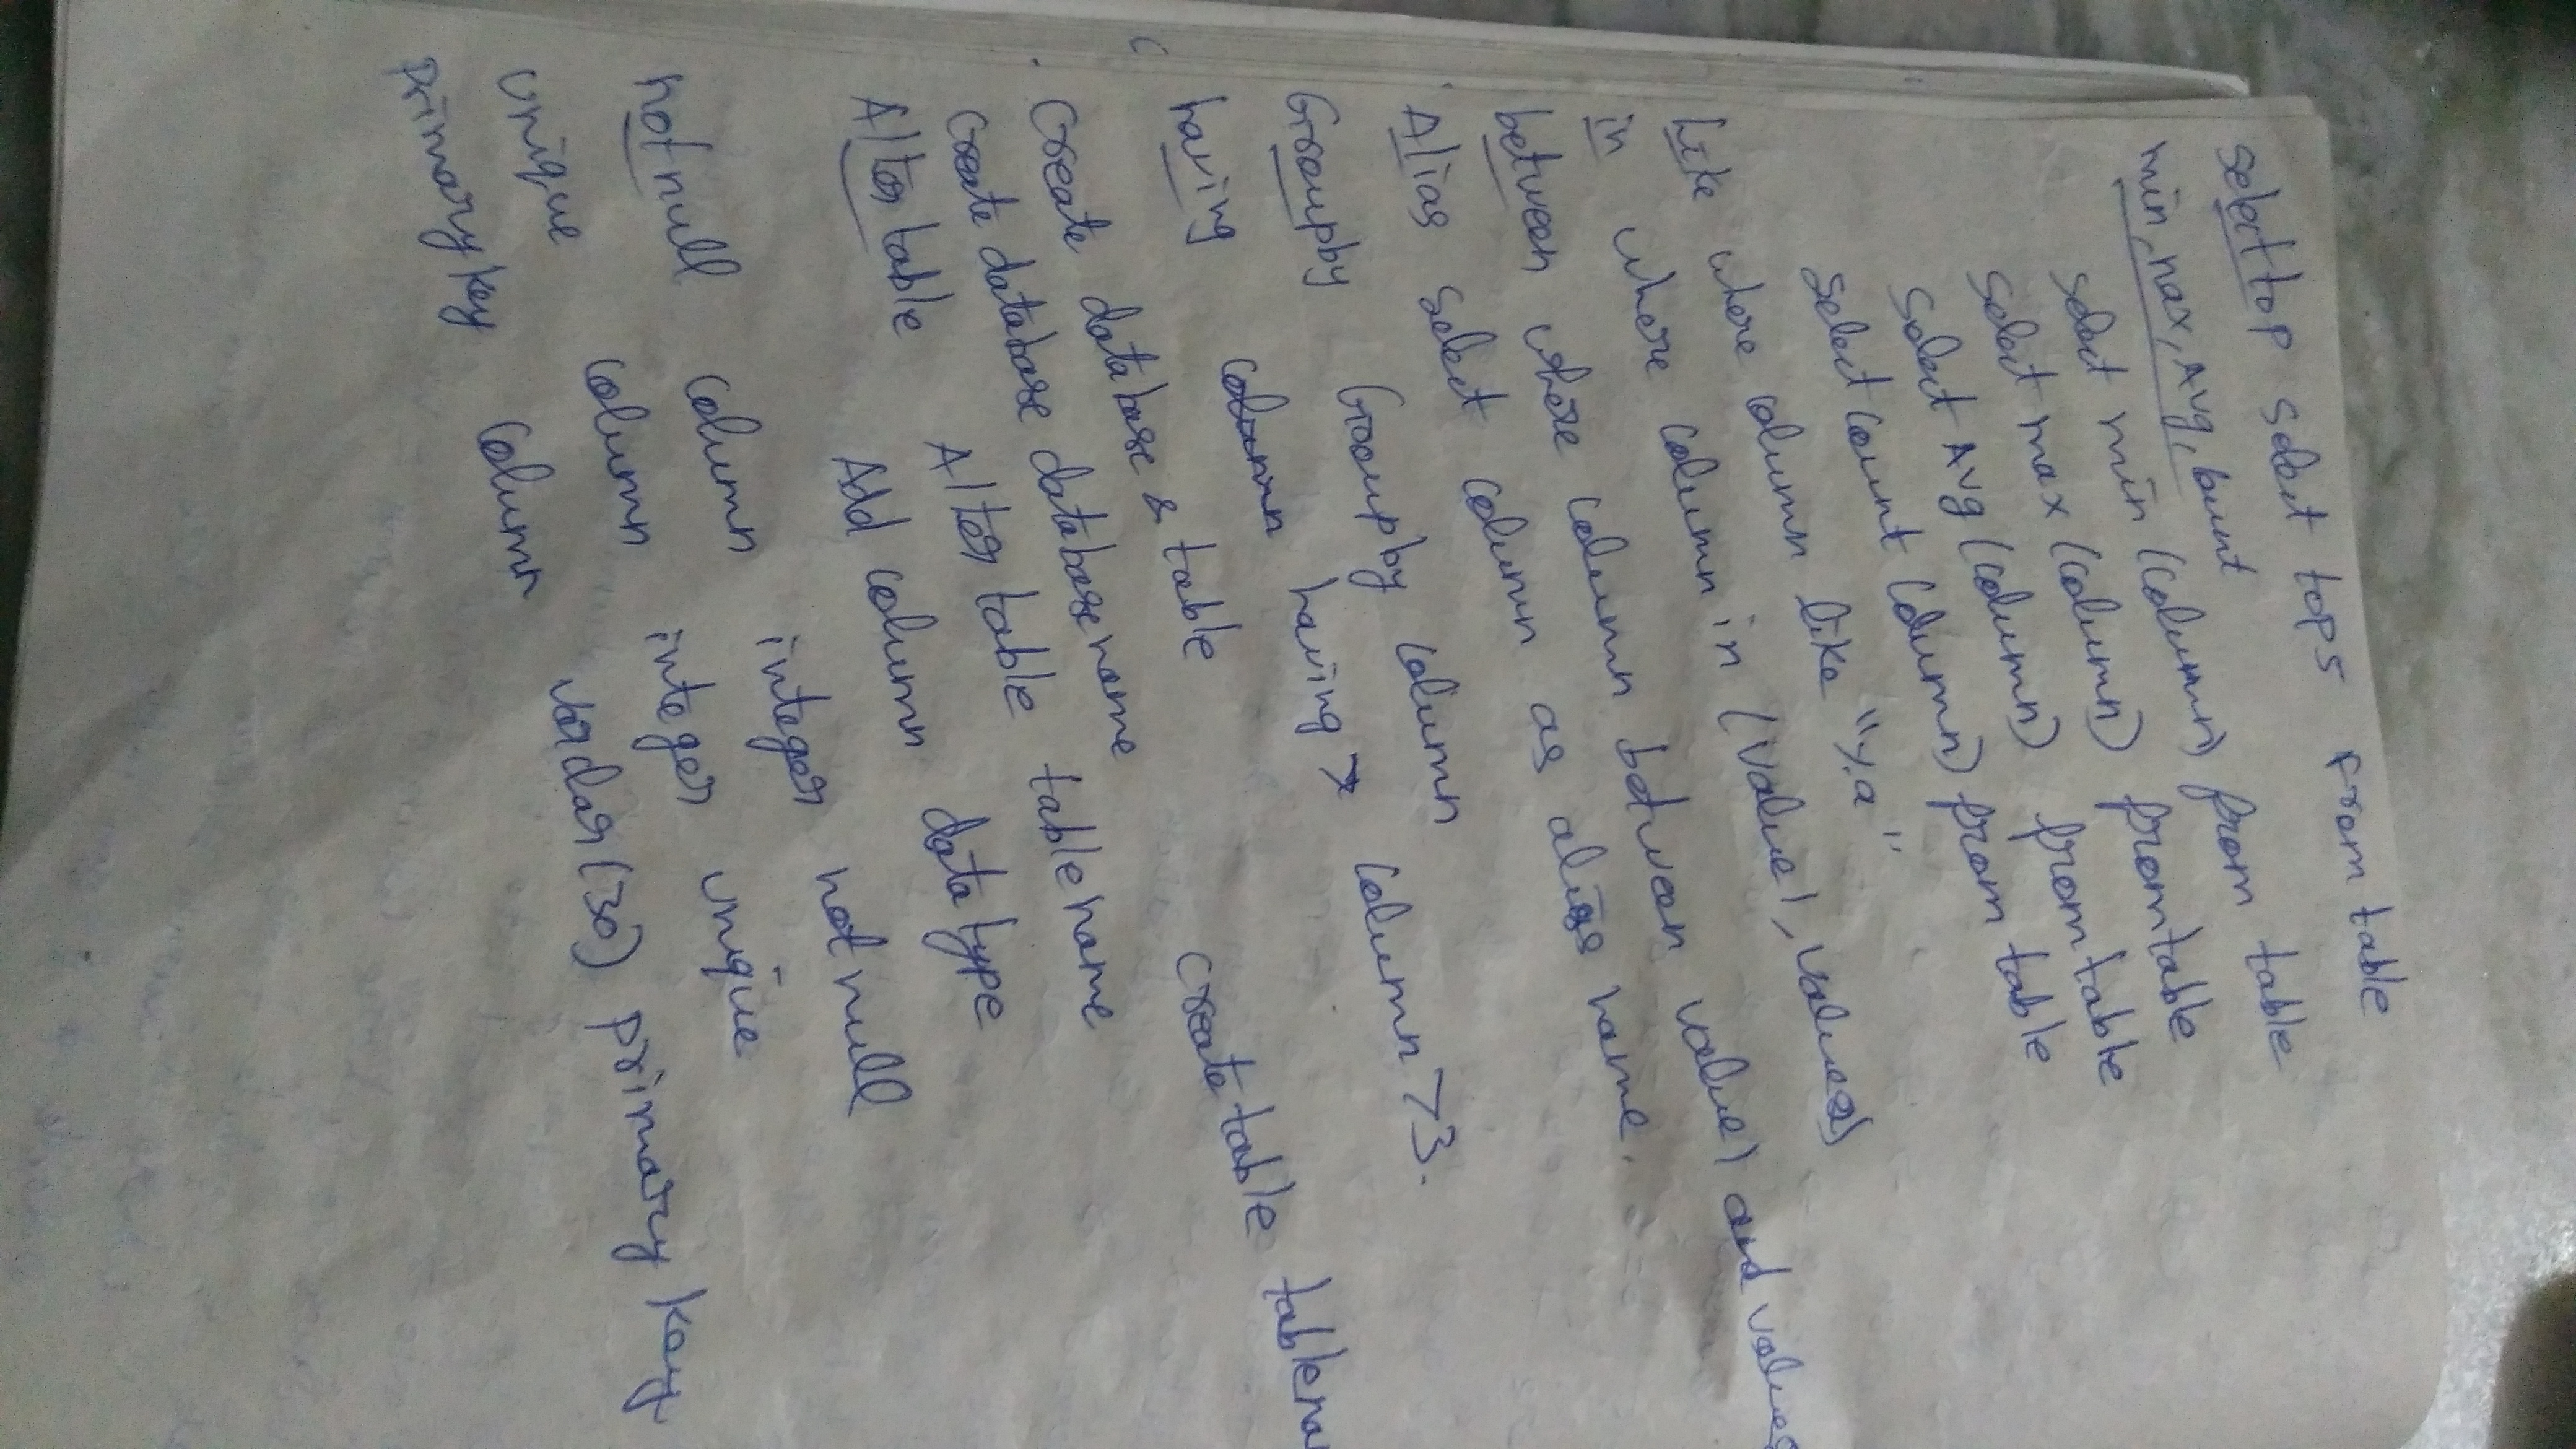 select top select top 5 from table
min, max, Avg, count
select min (column) from table
select max (column) from table
select Avg (column) from table
select count (column) from table
like where column like "%a"
in where column in (value1, value2)
between where column between value1 and value2
Alias select column as alias name.
Group by Group by column
having column having > column > 3.
Create database & table create table tablena
Create database database name
Alter table Alter table table name
Add column data type
not null column integer not null
unique column integer unique
primary key column varchar (30) primary key